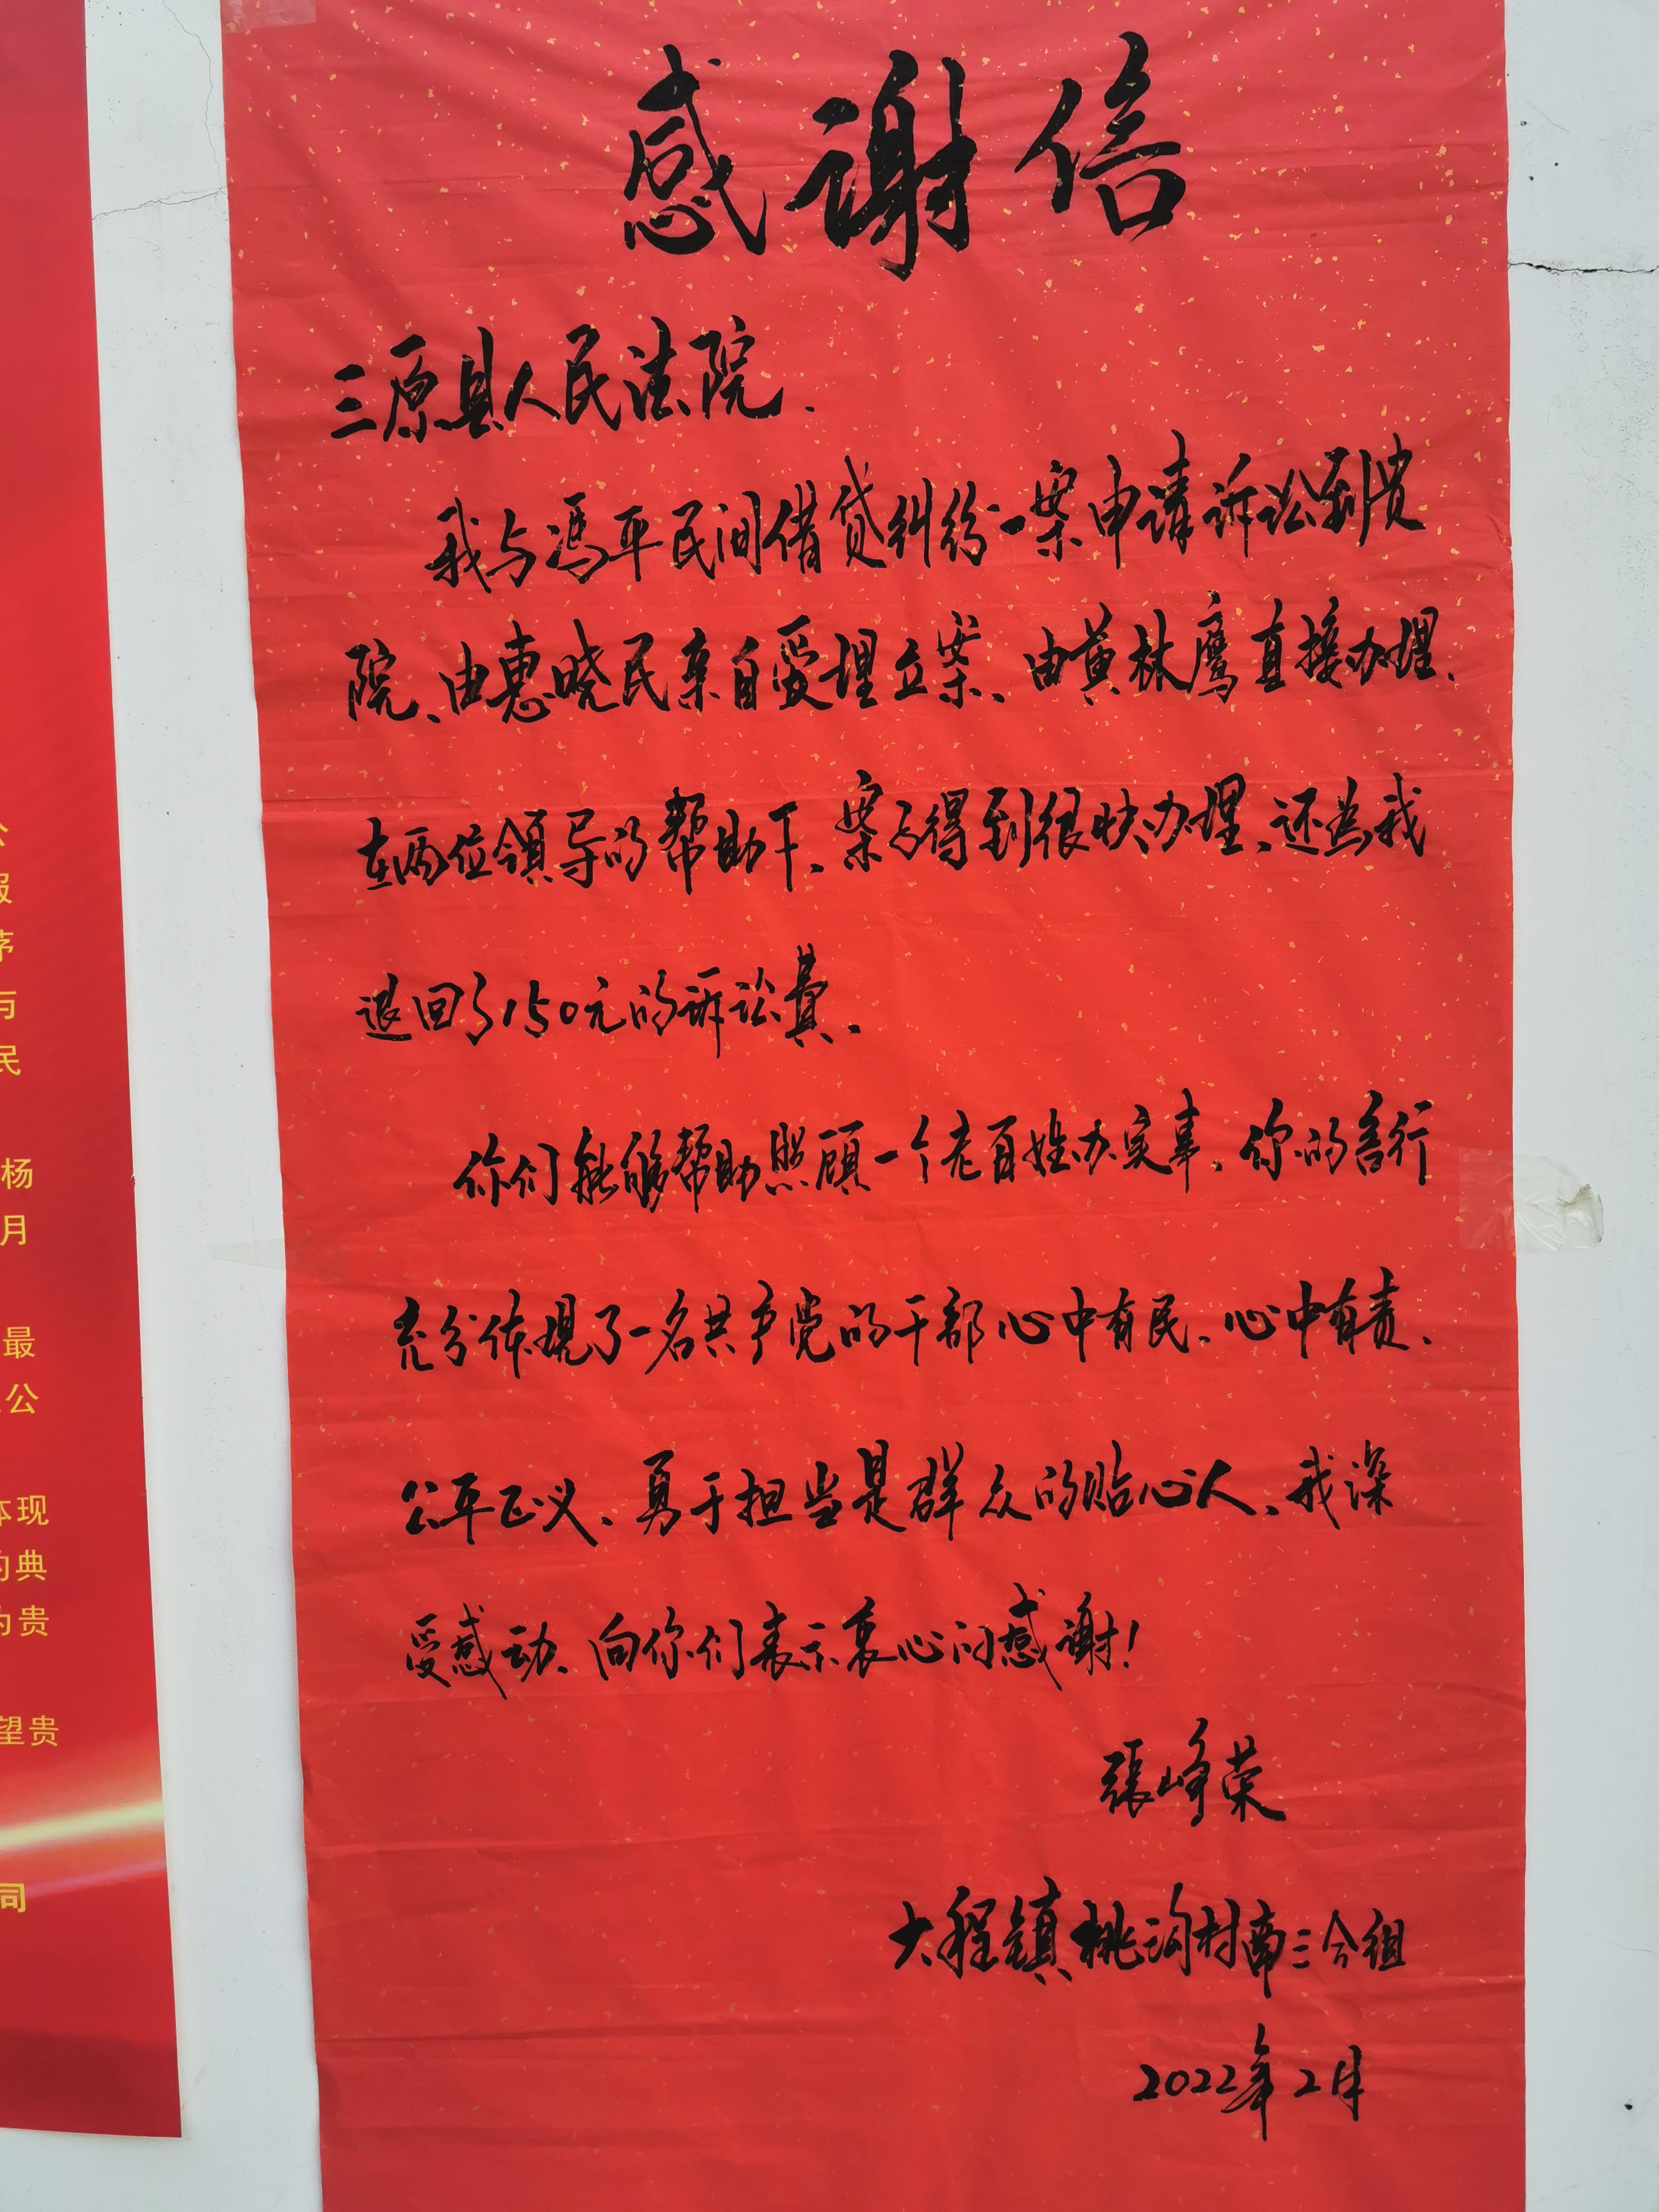 感谢信
三原县人民法院.
我与冯平民间借贷纠纷一案申请诉讼到贵
院、由惠晓民亲自受理立案、由黄林鹰直接办理、
在两位领导的帮助下、案子得到很快办理、还为我
退回了150元的诉讼费、
你们能够帮助照顾一个老百姓办实事、你的善行
充分体现了一名共产党的干部心中有民、心中有责、
公平正义、勇于担当是群众的贴心人、我深
受感动、向你们表示衷心的感谢!
張峰荣
大程镇桃沟村南三合组
2022年2月
报
茅
与
民
杨
月
最
公
体现
的典
为贵
望贵
同